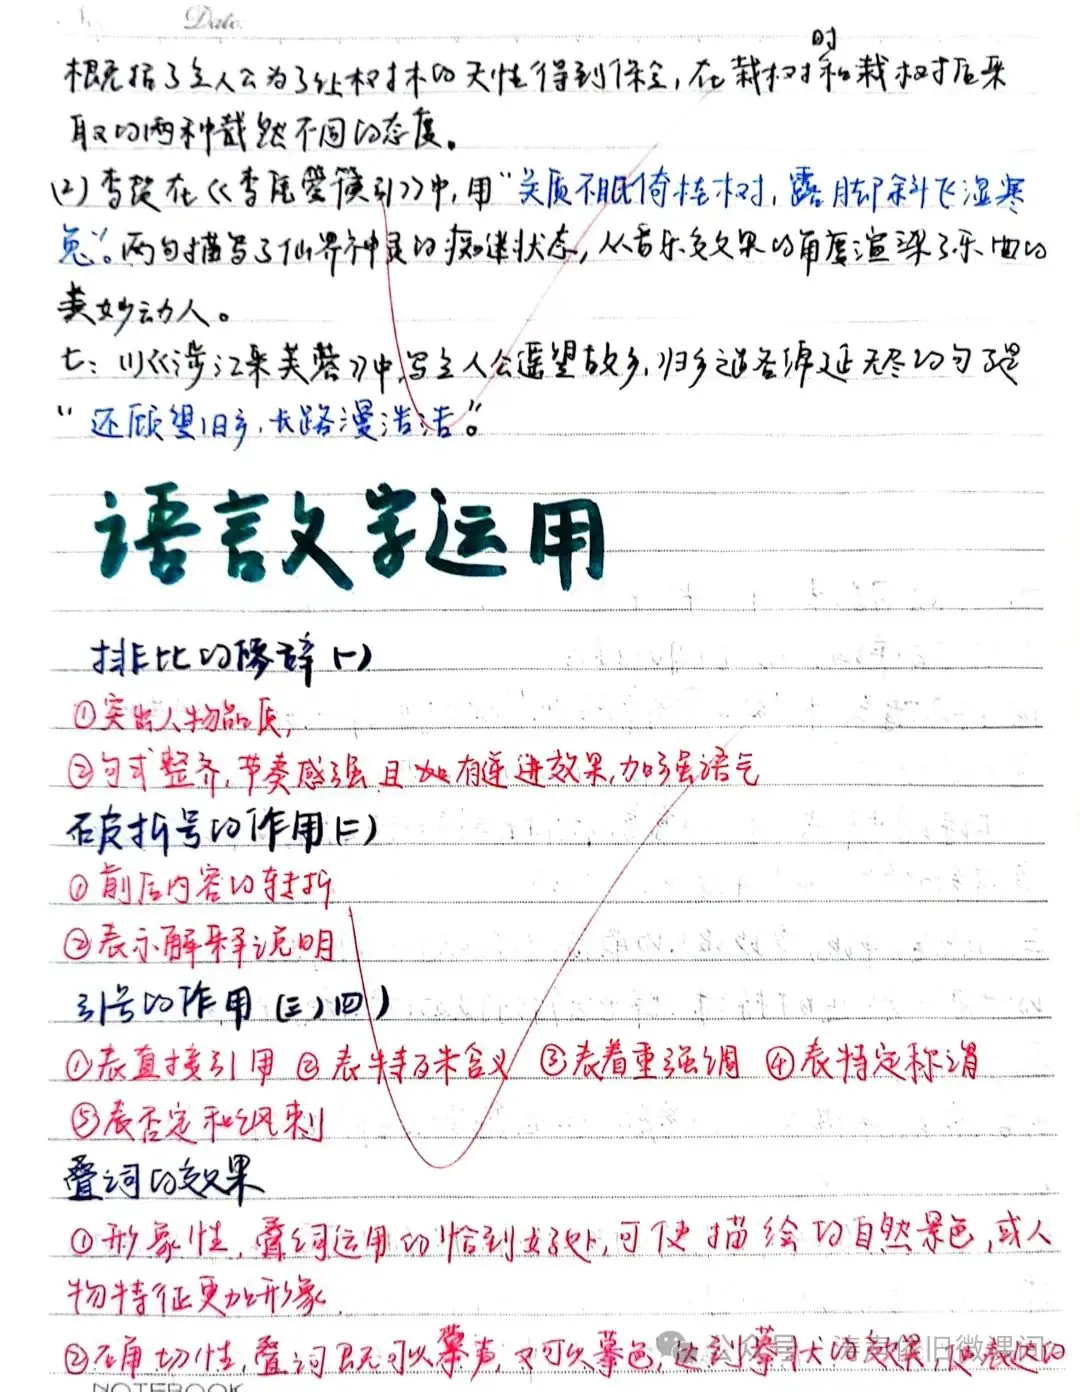 Date.
时
概括了主人公为了让树木的天性得到保全，在栽树和栽树后采
取的两种截然不同的态度。
(2) 李贺在《李凭箜篌引》中，用“吴质不眠倚桂树，露脚斜飞湿寒
兔”。两句描写了仙界神灵的痴迷状态，从音乐效果的角度渲染了乐曲的
美妙动人。
七：(1)《涉江采芙蓉》中写主人公遥望故乡，归乡道各绵延无尽的句子是
“还顾望旧乡，长路漫浩浩”。
语言文字运用
排比的修辞(一)
①突出人物品质，
②句式整齐，节奏感强且 有递进效果，加强语气
破折号的作用(二)
①前后内容的转折
②表示解释说明
引号的作用(三)(四)
①表直接引用 ②表特殊含义 ③表着重强调 ④表特定称谓
⑤表否定和讽刺
叠词的效果
①形象性，叠词运用的恰到好处，可使描绘的自然景色，或人
物特征更加形象
②确切性，叠词既可以摹声，又可以摹色，达到摹状的效果，使表达的
公众号·涛声依旧微课间
NOTEBOOK